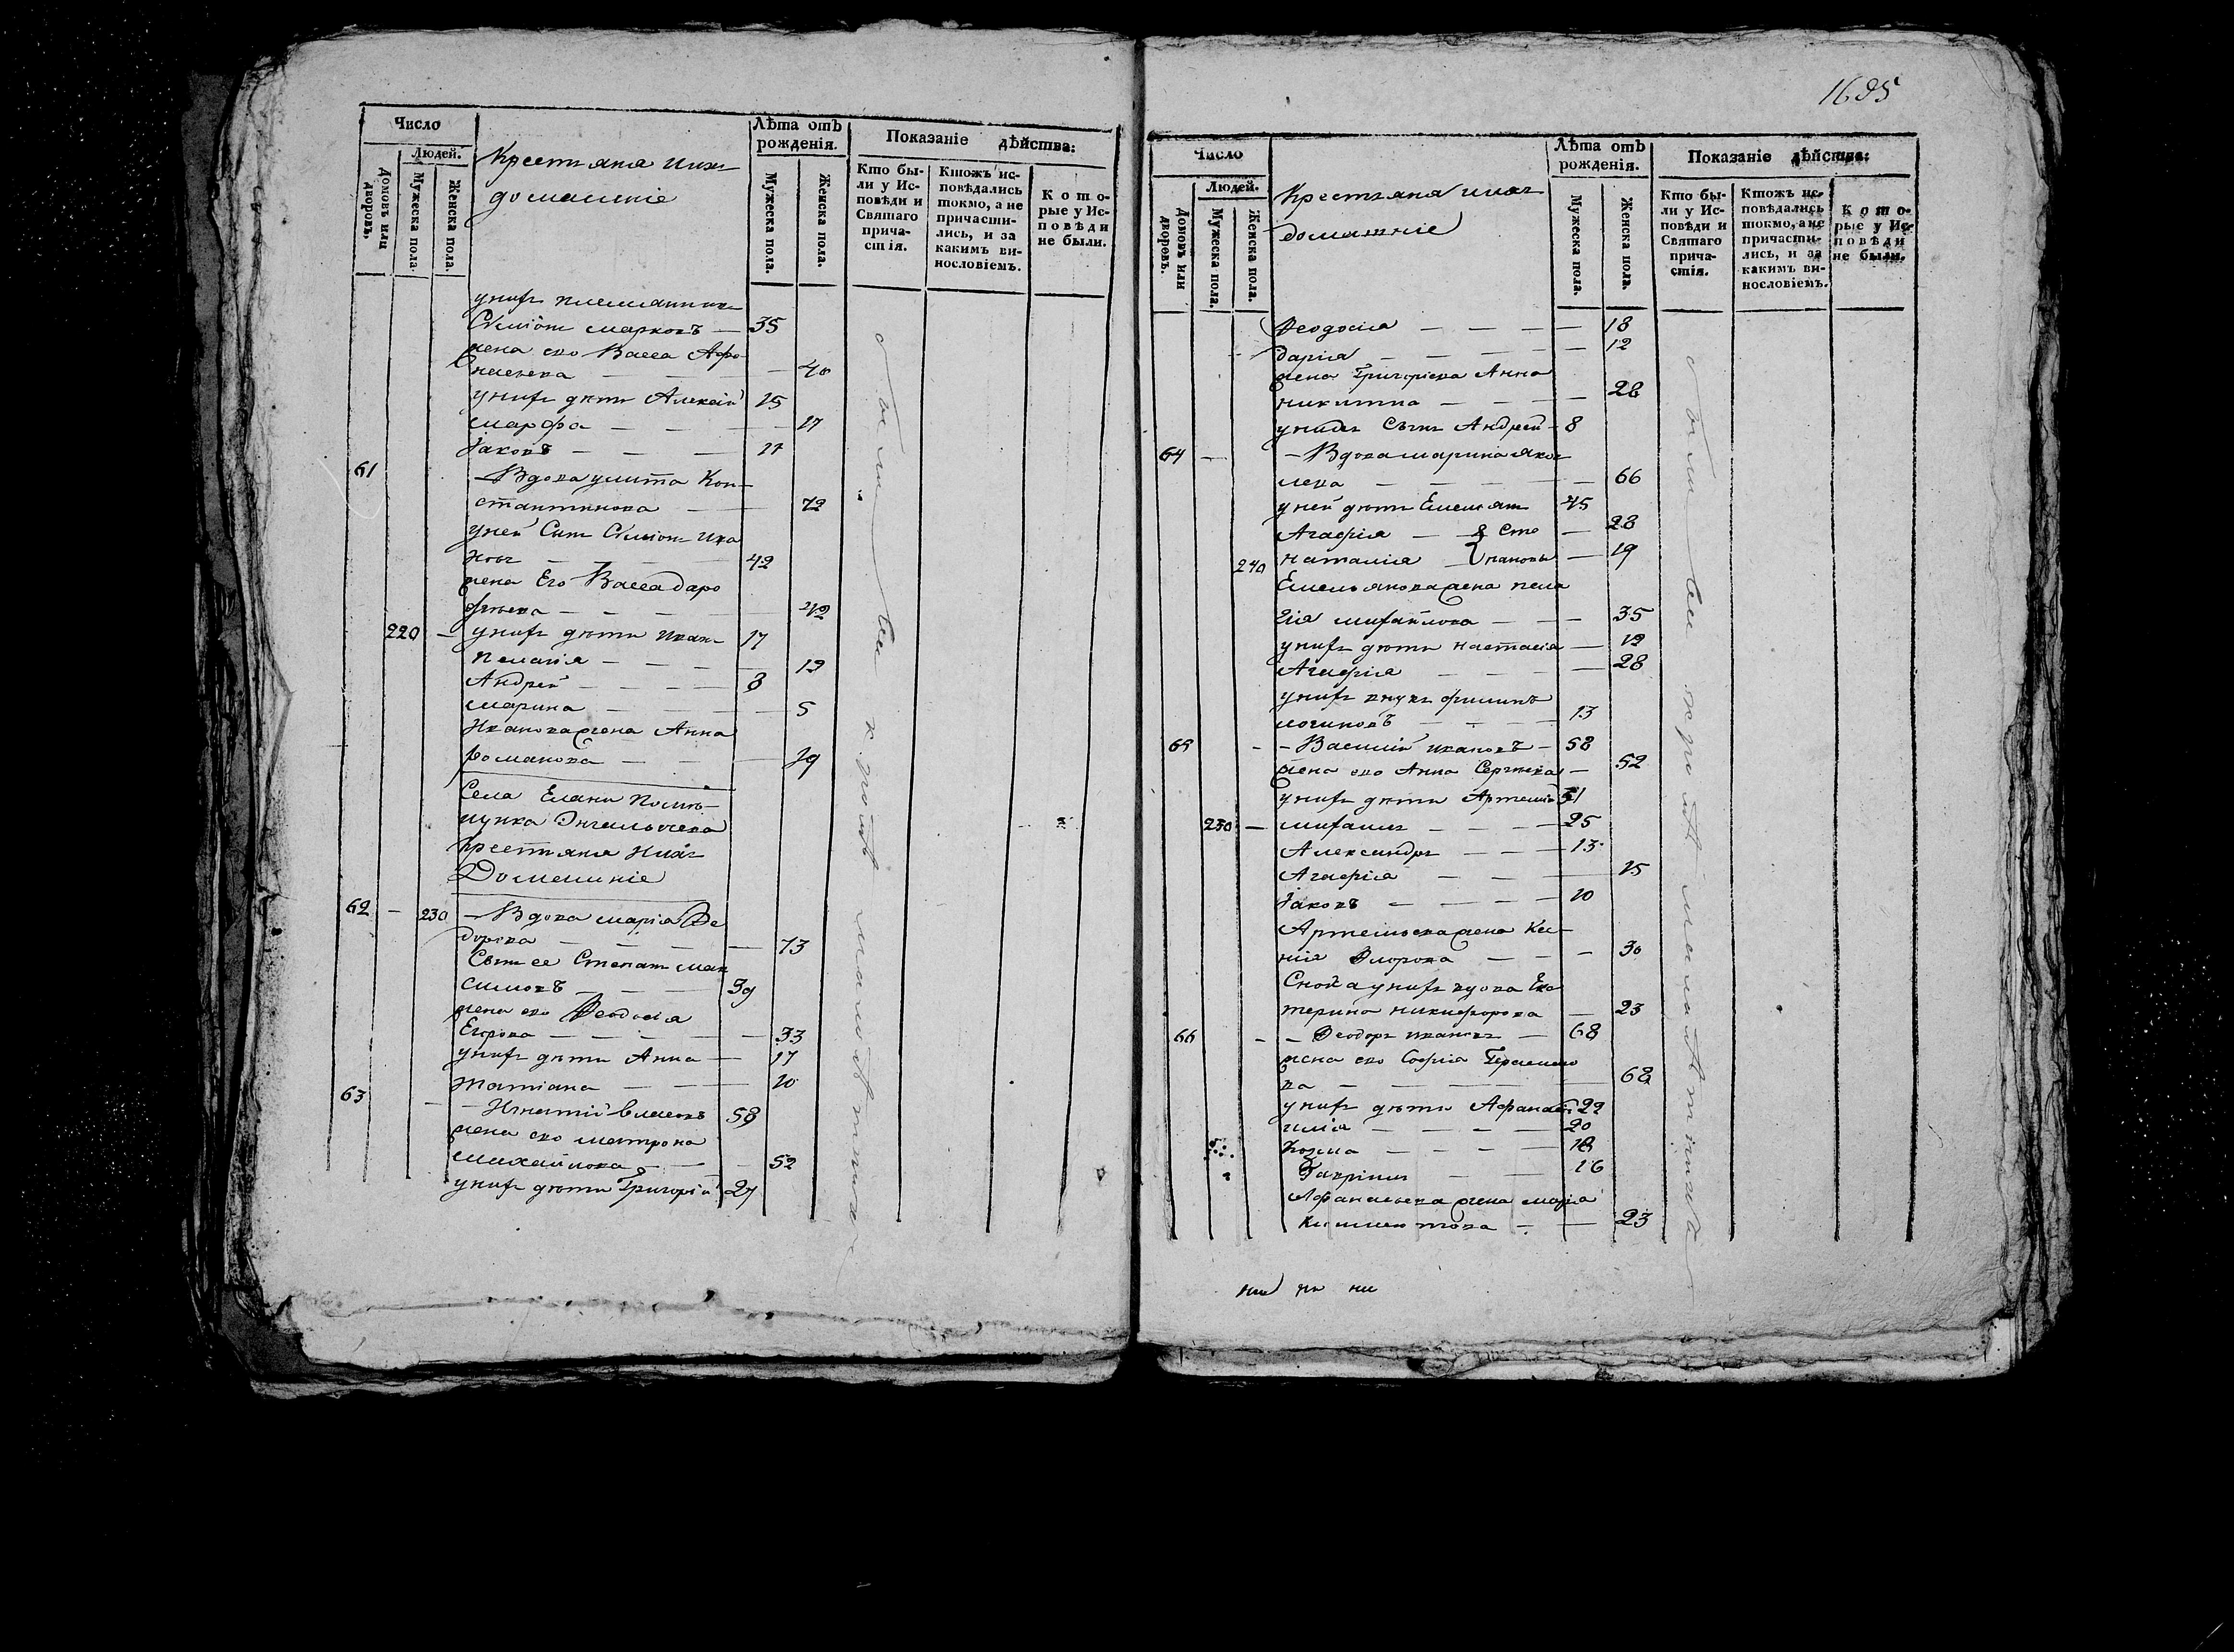 Число
Людей.
Домовъ или дворовъ.
Мужеска пола.
Женска пола.
Крестьяна ихъ
домашніе
Лѣта отъ рожденія.
Мужеска пола.
Женска пола.
Показаніе дѣйства:
Кто бы-
ли у Ис-
повѣди и
Святаго
прича-
стія.
Ктожъ ис-
повѣдались
токмо, а не
причасти-
лись, и за
какимъ ви-
нословіемъ.
Кото-
рые у Ис-
повѣди
не были.
унихъ племянникъ
Сѵміонъ марковъ — 35
жена его Васса Афо-
насьева — 40
унихъ дѣти Алексѣй 25
марфа — 17
Іаковъ —
61 — Вдова улита Кон-
стантинова — 72
уней Сынъ Сѵміонъ Ива
новъ — 42
жена Его Васса даро
фѣева — 42
220 — унихъ дѣти иванъ 17
пелагія — 12
Андрей — 8
марина — 5
Иванова жена Анна
романова — 19
Села Елани Помѣ-
щика Энгельгчева
крестьяна ихъ
Домашніе
62 — 230 — Вдова марія Ѳе
дорова — 73
Сынъ ее Степанъ мак
симовъ — 39
жена его Ѳеодосія
Егорова — 33
унихъ дѣти Анна — 17
татіана — 10
63 — Игнатій власовъ 58
жена его матрона
михайлова — 52
унихъ дѣти Григорій 27
1695
Число
Людей.
Домовъ или дворовъ.
Мужеска пола.
Женска пола.
Крестьяна ихъ
домашніе
Лѣта отъ рожденія.
Мужеска пола.
Женска пола.
Показаніе дѣйства:
Кто бы-
ли у Ис-
повѣди и
Святаго
прича-
стія.
Ктожъ ис-
повѣдались
токмо, а не
причасти-
лись, и за
какимъ ви-
нословіемъ.
Кото-
рые у Ис-
повѣди
не были.
Ѳеодосіа — 18
даріа — 12
жена Григорьева Анна
никитина — 28
унихъ Сынъ Андрей — 8
64 — Вдова марина яков
лева — 66
уней дѣти Емельянъ 45
Агафіа — Сте — 28
240 наталіа — пановы — 19
Емельянова жена пела
гія михайлова — 35
унихъ дѣти настасіа — 12
Агафіа — 28
унихъ внукъ филипъ
логиновъ — 13
65 — Василій ивановъ — 58
жена его Анна Сергѣева — 52
унихъ дѣти Артемій 31
230 — михаилъ — 25
Александръ — 13
Агафіа — 15
Іаковъ — 10
Артемьева жена Ксе-
нія — 30
Сноха унихъ вдова Ека
терина никифорова — 23
66 — Ѳеодоръ ивановъ — 68
жена его Софіа Герасимо
ва — 68
унихъ дѣти Афанасій 22
илія — 20
Козма — 18
Гавріилъ — 16
Афанасьева жена маріа
климентова — 23